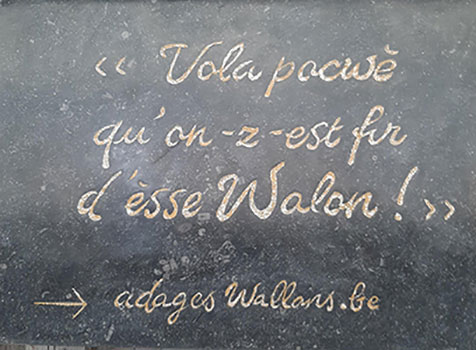 « Vola pocwè
qu'on-z-est fir
d'èsse Walon ! »
→ adages Wallons.be